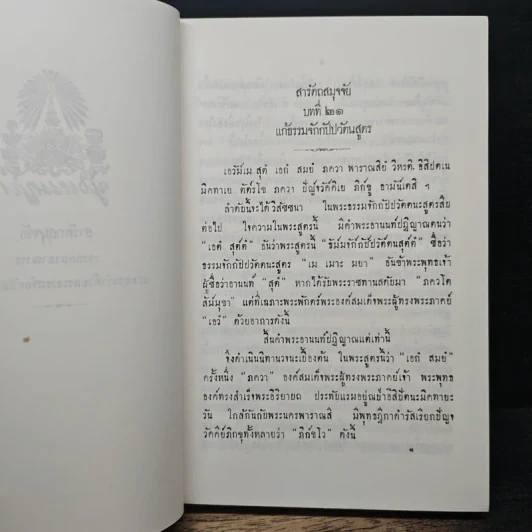 สารัตถสมุจจัย
บทที่ ๒๑
แก้ธรรมจักกัปปวัตนสูตร
เอวัมเม สุตํ เอกํ สมยํ ภควา พาราณสิยํ วิหรติ อิสิปตเน
มิคทาเย ตัตร์โข ภควา ปัญจวัคคิเย ภิกขู อามันเตสิ ฯ
ลำดับนี้จะได้วิสัชชนา ในพระธรรมจักกัปปวัตตนะสูตรสืบ
ต่อไป ใจความในพระสูตรนี้ มีคำพระอานนท์ปฏิญาณตนว่า
"เอตํ สุตตํ" อันว่าพระสูตรนี้ "ธัมมจักกัปปวัตตนสุตตํ" ชื่อว่า
ธรรมจักกัปปวัตตนะสูตร "เม เมาะ มยา" อันข้าพระพุทธเจ้า
ผู้ชื่อว่าอานนท์ "สุตํ" หากได้รับพระราชทานสดับมา "ภควโต
สัมมุขา" แต่ที่เฉพาะพระพักตร์พระองค์สมเด็จพระผู้ทรงพระภาคย์
"เอวํ" ด้วยอาการดังนี้
สิ้นคำพระอานนท์ปฏิญาณแต่เท่านี้
จึงดำเนินนิทานวจนะเบื้องต้น ในพระสูตรนี้ว่า "เอกํ สมยํ"
ครั้งหนึ่ง "ภควา" องค์สมเด็จพระผู้ทรงพระภาคย์เจ้า พระพุทธ
องค์ทรงสำเร็จพระอิริยายถ ประทับแรมอยู่ณป่าอิสิปัตนะมิคทายะ
วัน ใกล้กันกับพระนครพาราณสี มีพุทธฎีกาดำรัสเรียกปัญจ
วัคคีย์ภิกขุทั้งหลายว่า "ภิกขโว" ดังนี้